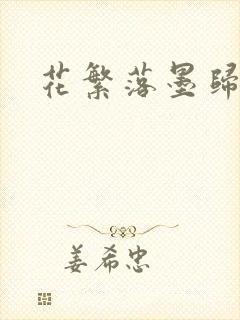 花繁落墨歸
姜希忠